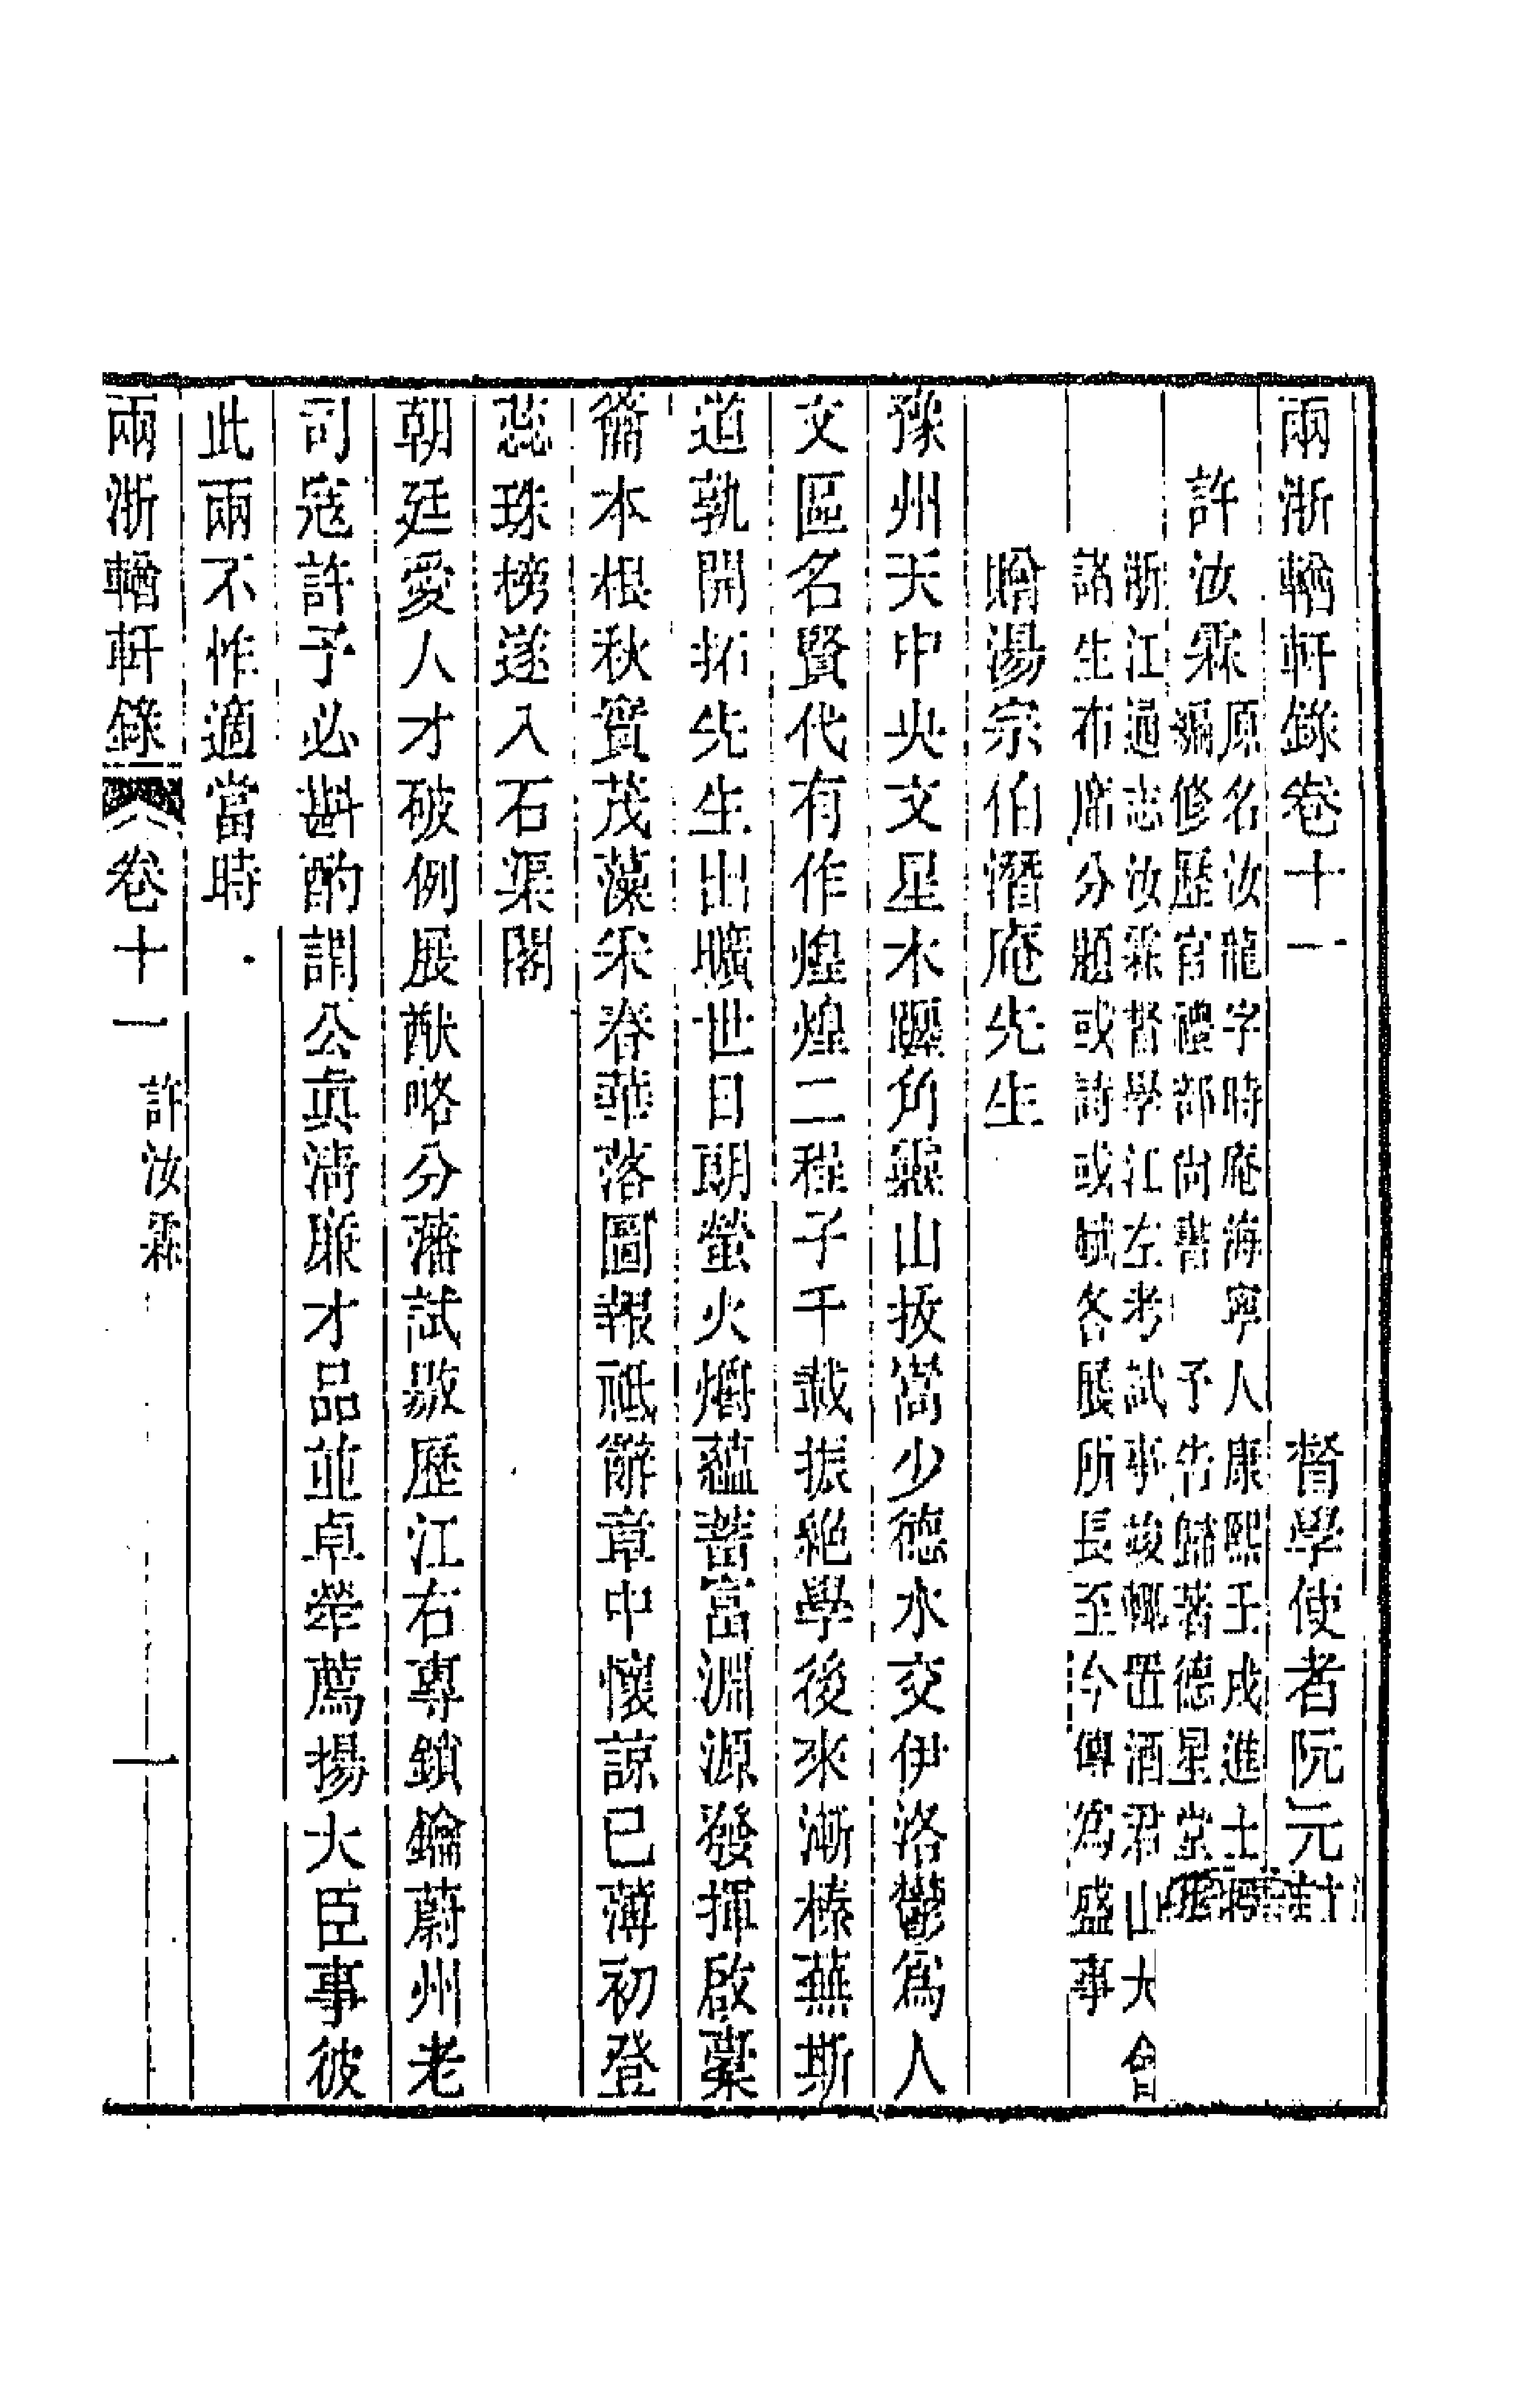 兩浙輶軒錄卷十一　督學使者阮元訂
許汝霖
原名汝龍字時庵海寧人康熙壬戌進士
編修歷官禮部尚書　予告歸著德星堂
浙江通志汝霖督學江左考試事竣輒置酒君山大會
諸生布席分題或詩或賦各展所長至今傳為盛事
贈湯宗伯潛庵先生
豫州天中央文星木躔角巀山拔嵩少德水交伊洛鬱為人
文區名賢代有作煌煌二程子千載振絕學後來漸榛蕪斯
道孰開拓先生出曠世日朗螢火爝蘊蓄富淵源發揮啟橐
籥本根秋實茂藻采春華落圖報祗辭章中懷諒已薄初登
蕊珠榜遂入石渠閣
朝廷愛人才破例展猷略分藩試敭歷江右專鎖鑰蔚州老
司寇許予必斟酌謂公真清廉才品並卓犖薦揚大臣事彼
此兩不怍適當時
兩浙輶軒錄　卷十一　許汝霖　一